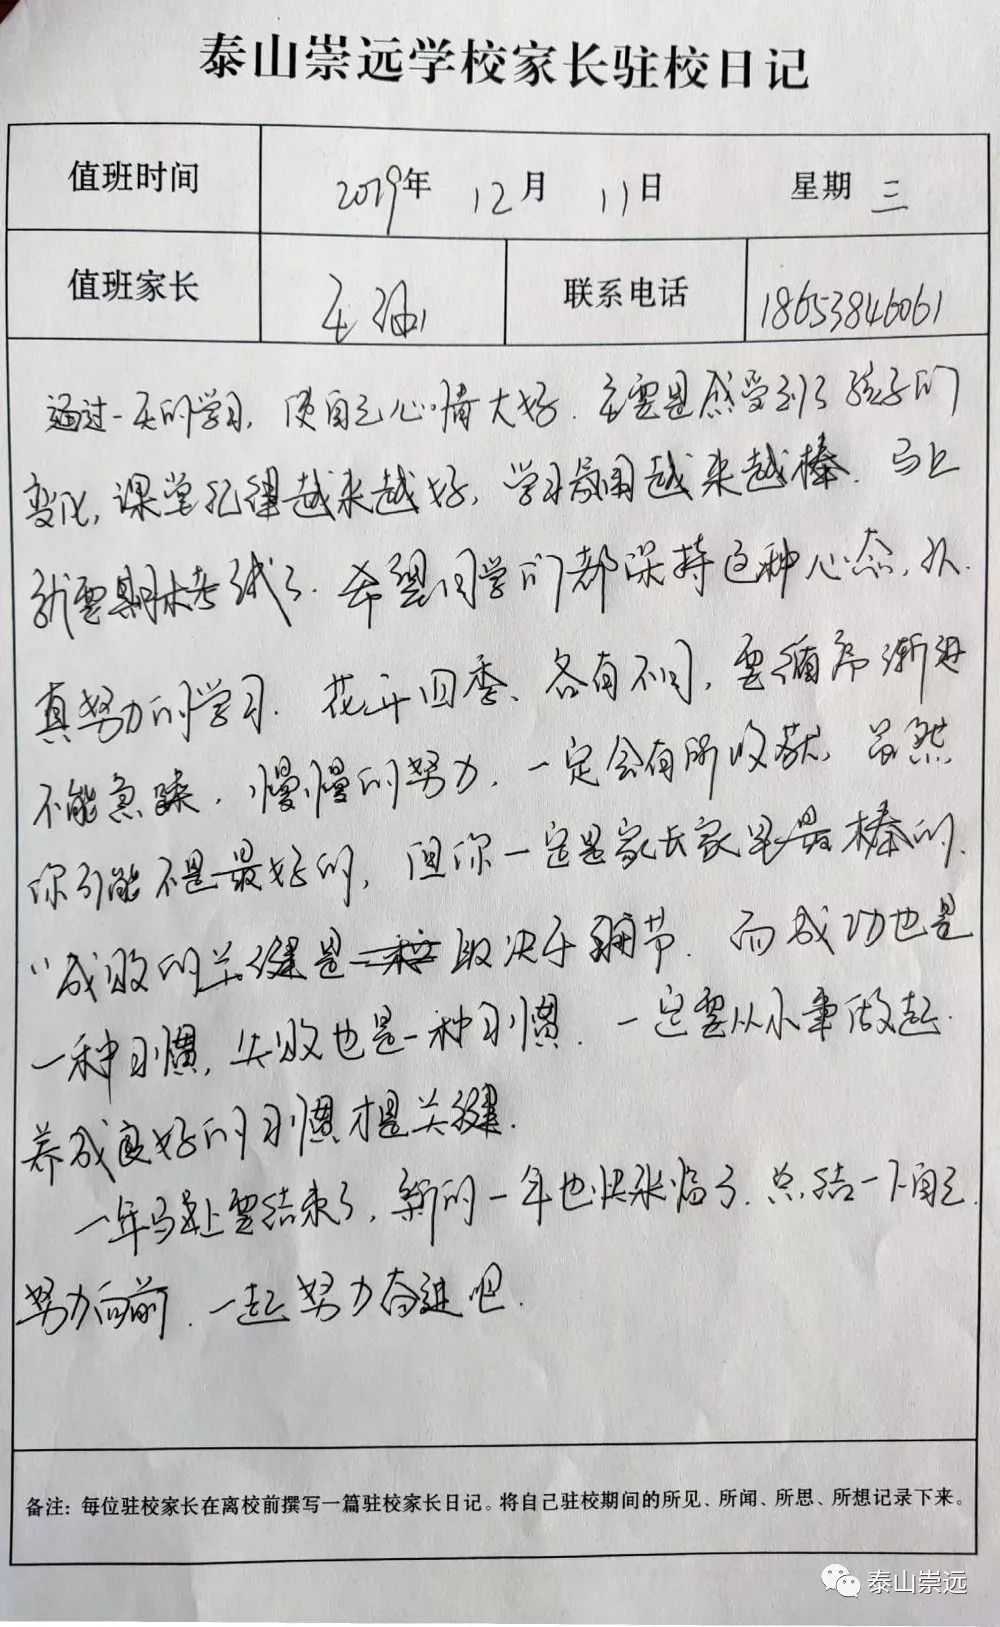 泰山崇远学校家长驻校日记
值班时间 2019年 12月 11日 星期 三
值班家长 联系电话 18653846061
通过一天的学习，使自己心情大好．主要是感受到了孩子们
变化，课堂纪律越来越好，学习氛围越来越棒．马上
就要期末考试了．希望同学们都保持这种心态，认
真努力的学习．花开四季、各有不同，要循序渐进
不能急躁，慢慢的努力，一定会有所收获，虽然
你可能不是最好的，但你一定是家长家里最棒的．
"成败的关键是取决于细节．而成功也是
一种习惯，失败也是一种习惯．一定要从小事做起．
养成良好的习惯才是关键．
一年马上要结束了，新的一年也快来临了．总结一下自己．
努力向前．一起努力奋进吧．
备注：每位驻校家长在离校前撰写一篇驻校家长日记。将自己驻校期间的所见、所闻、所思、所想记录下来。
泰山崇远